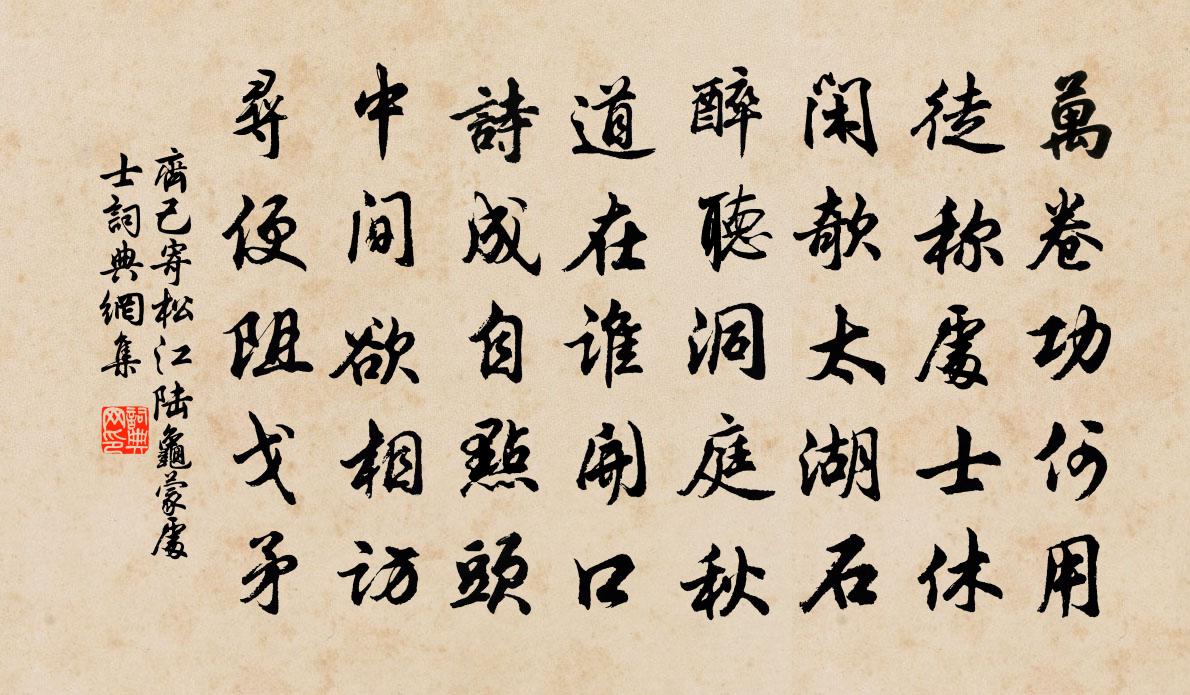 萬卷功何用
徒称處士休
閑欹太湖石
醉聽洞庭秋
道在誰開口
詩成自點頭
中間欲相訪
尋便阻戈矛
齊己寄松江陆龜蒙處
士詞典網集
詞典网印